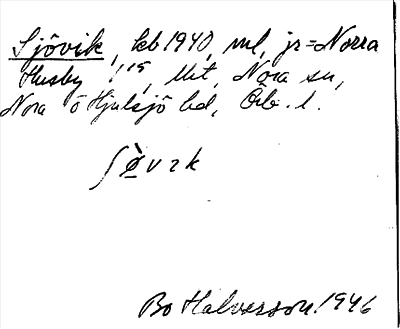 Sjövik, kb 1940, ml, jr = Norra
Husby 1¹⁵, Utt, Nora sn,
Nora o Hjulsjö bd, Örb. l.
ʃø̀vɪk
Bo Halversson 1946